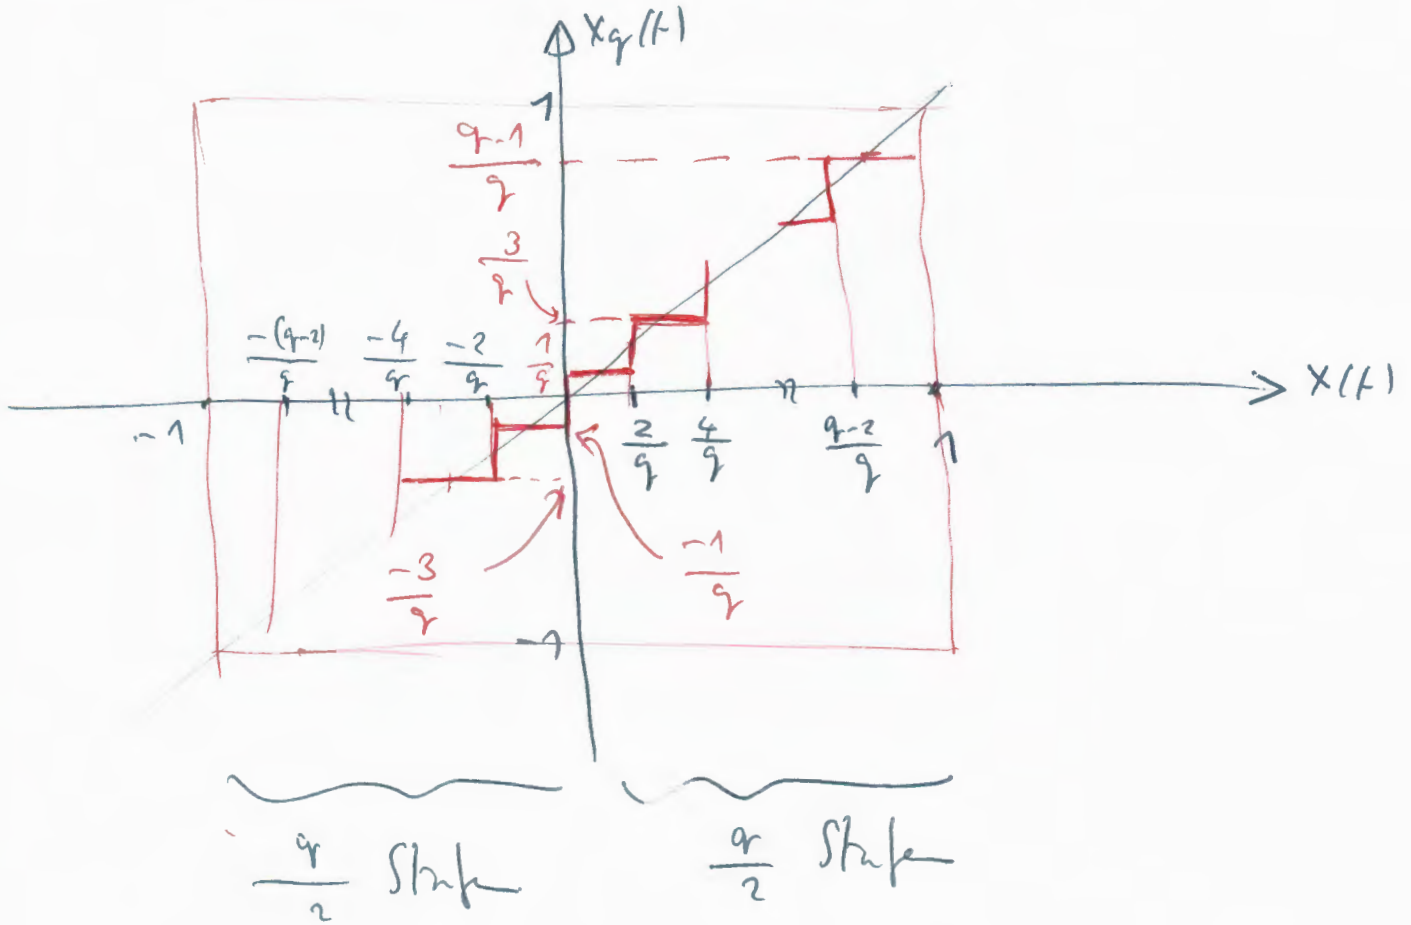 Xq(t)
1
q-1/q
3/q
-(q-2)/q
-4/q
-2/q
1/q
X(t)
-1
2/q
4/q
q-2/q
1
-3/q
-1/q
-1
q/2 Stufen
q/2 Stufen